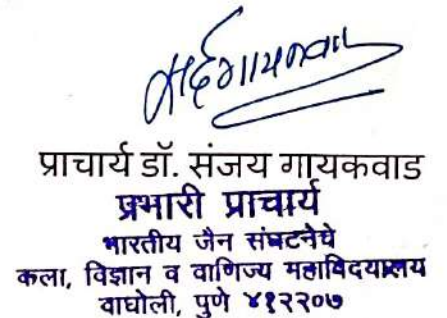 प्राचार्य डॉ. संजय गायकवाड
प्रभारी प्राचार्य
भारतीय जैन संघटनेचे
कला, विज्ञान व वाणिज्य महाविदयालय
वाघोली, पुणे ४१२२०७